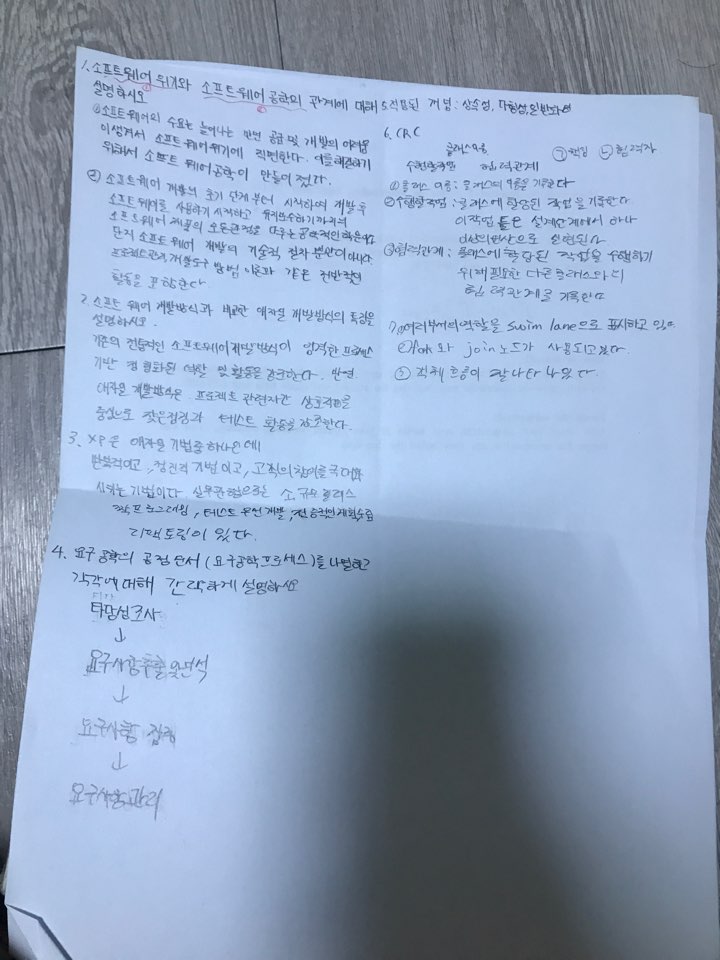 1. 소프트웨어 위기와 소프트웨어 공학의 관계에 대해
설명하시오
① 소프트웨어의 수요는 늘어나는 반면 공급 및 개발의 어려움
이 생겨서 소프트웨어 위기에 직면한다. 이를 해결하기
위해서 소프트웨어 공학이 만들어 졌다.
② 소프트웨어 개발의 초기 단계부터 시작하여 개발 후
소프트웨어를 사용하기 시작하고 유지보수하기까지의
소프트웨어 제품의 모든 관점을 다루는 공학적인 학문이다
단지 소프트웨어 개발의 기술적 절차 뿐만이 아니다
프로젝트관리 개발도구 방법 이론과 같은 전반적인
활동을 포함한다
2. 소프트웨어 개발방식과 비교한 애자일 개발방식의 특징을
설명하시오.
기존의 전통적인 소프트웨어 개발방식이 엄격한 프로세스
기반 정형화된 역할 및 활동을 강조한다. 반면
애자일 개발방식은 프로젝트 관련자간 상호작용을
중심으로 잦은 점검과 테스트 활동을 강조한다.
3. XP은 애자일 기법중 하나인데
반복적이고, 점진적 기법이고, 고객의 참여를 극대화
시키는 기법이다. 실무관행으로는 소규모 릴리스
짝 프로그래밍, 테스트 우선 개발, 점증적인 계획수립
리팩토링이 있다.
4. 요구공학의 공정 순서(요구공학 프로세스)를 나열하고
각각에 대해 간략하게 설명하시오
타당성조사
↓
요구사항추출 및 분석
↓
요구사항
↓
요구사항관리
5. 적용된 개념: 상속성, 다형성, 일반화
6. CRC
클래스 이름
수행할작업 협력관계
㉠ 책임 ㉡ 협력자
① 클래스 이름: 클래스의 이름을 기록한다
② 수행할작업: 클래스에 할당된 작업을 기록한다.
이 작업들은 설계단계에서 하나
이상의 연산으로 실현된다
③ 협력관계: 클래스에 할당된 작업을 수행하기
위해 필요한 다른 클래스와의
협력관계를 기록한다
7. ① 여러부서의 역할을 swim lane으로 표시하고 있다
② fork와 join 노드가 사용되고있다.
③ 객체 흐름이 잘 나타나있다.